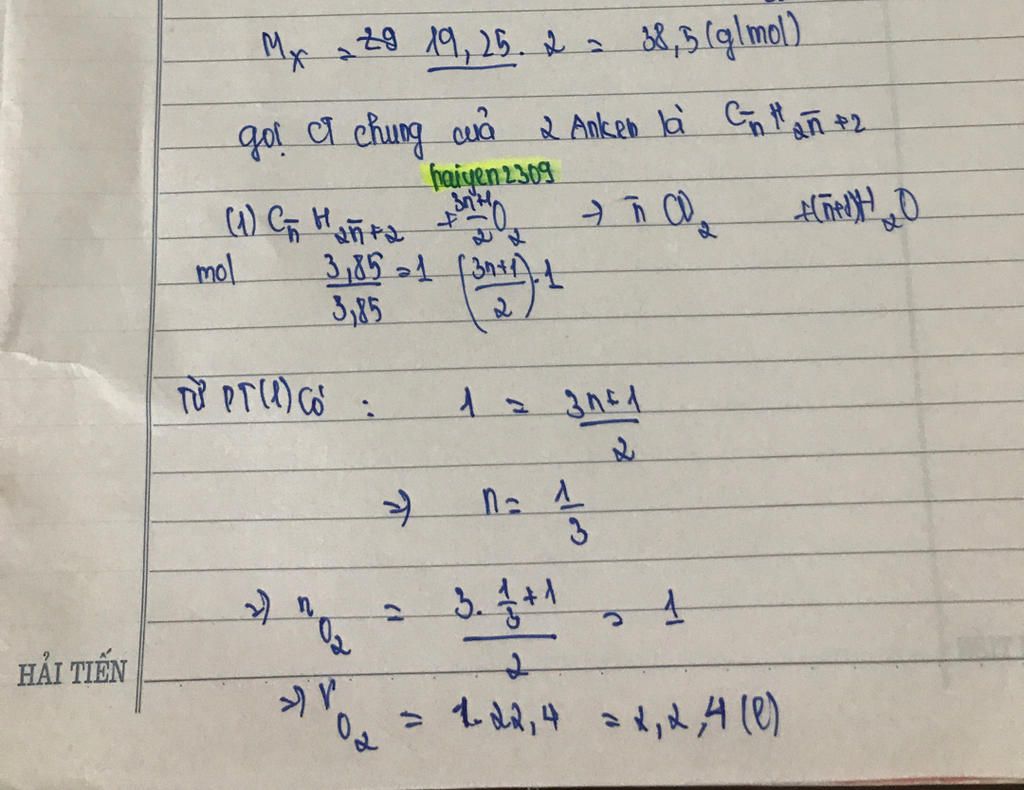 M_X = 19,25 . 2 = 38,5 (g/mol)
gọi CT chung của 2 Anken là C_n̄ H_2n̄+2
haiyen2309
(1) C_n̄ H_2n̄+2 + (3n̄+1)/2 O_2 → n̄ CO_2 + (n̄+1) H_2O
mol 3,85/3,85 = 1 ((3n+1)/2) . 1
Từ PT (1) có : 1 = (3n+1)/2
⇒ n = 1/3
⇒ n_O_2 = (3 . 1/3 + 1)/2 = 1
HẢI TIẾN
⇒ V_O_2 = 1. 22,4 = 2,2,4 (l)